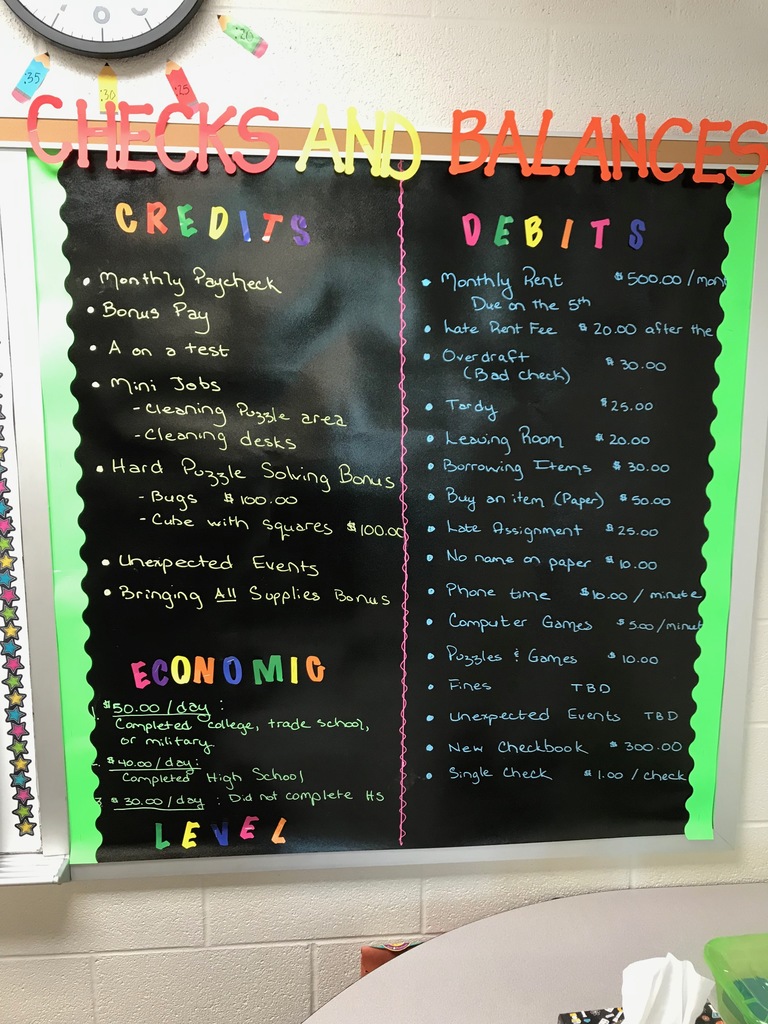 :35
:30
:25
:20
CHECKS AND BALANCES
CREDITS
• Monthly Paycheck
• Bonus Pay
• A on a test
• Mini Jobs
- Cleaning Puzzle area
- Cleaning desks
• Hard Puzzle Solving Bonus
- Bugs $100.00
- Cube with squares $100.00
• Unexpected Events
• Bringing All Supplies Bonus
ECONOMIC
$50.00/day:
Completed college, trade school,
or military
$40.00/day:
Completed High School
3. $30.00/day: Did not complete HS
LEVEL
DEBITS
• Monthly Rent $500.00/mon
Due on the 5th
• Late Rent Fee $20.00 after the
• Overdraft $30.00
(Bad check)
• Tardy $25.00
• Leaving Room $20.00
• Borrowing Items $30.00
• Buy an item (Paper) $50.00
• Late Assignment $25.00
• No name on paper $10.00
• Phone time $10.00/minute
• Computer Games $5.00/minut
• Puzzles & Games $10.00
• Fines TBD
• Unexpected Events TBD
• New Checkbook $300.00
• Single Check $1.00/check